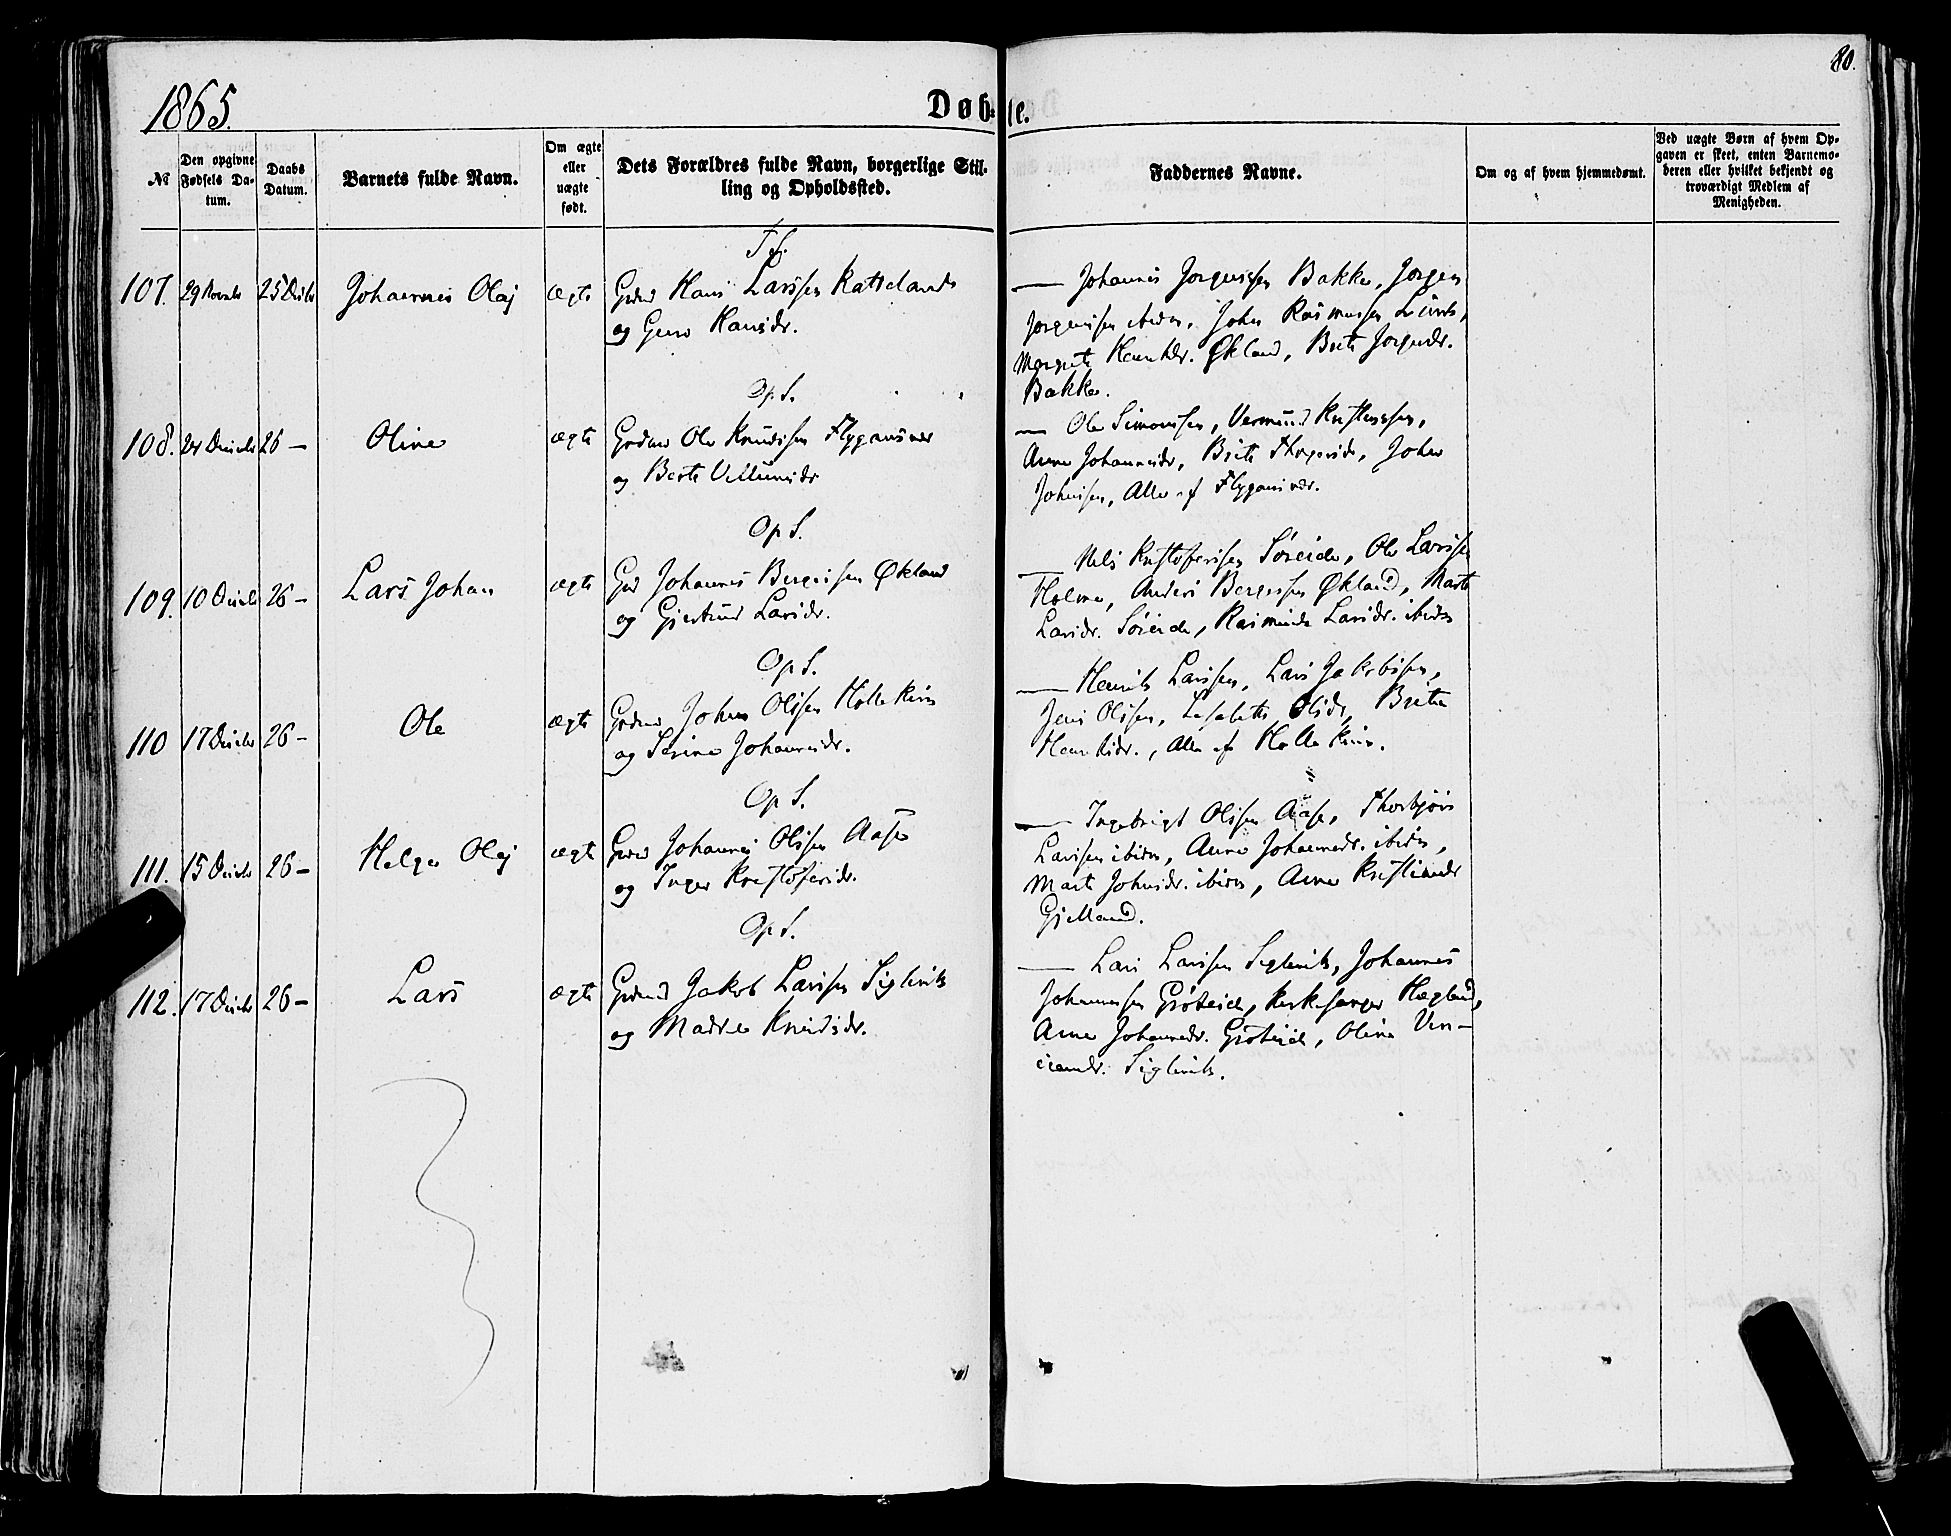 80.
1865.
Døbte.
№
Den opgivne Fødsels Da-
tum.
Daabs
Datum.
Barnets fulde Navn.
Om ægte
eller
uægte
født.
Dets Forældres fulde Navn, borgerlige Stil-
ling og Opholdssted.
Faddernes Navne.
Om og af hvem hjemmedøbt.
Ved uægte Børn af hvem Op-
gaven er skeet, enten Barnemo-
deren eller hvilket bekjendt og
troværdigt Medlem af
Menigheden.
107. 29 Novbr 25 Decbr Johannes Olaj ægte Hans Larssen
og Hansdr.
— Johannes Jørgensen Bakke, Jørgen
Jørgensen ibidm, John Rasmussen
Margrete Økland, Brite Jørgensdr.
Bakke.
Op S.
108. 24 Decbr 26 — Oline ægte Grdmd Ole Knudssen Flygansvær
og Berte
— Ole Simonssen, Vermund
Anne Johannesdr, Brite John
Johnsen, Alle af Flygansvær.
Op S.
109. 10 Decbr 26 — Lars Johan ægte Johannes Bergessen Økland
og Gjertrud Larsdr.
— Nels Kristofersen Søreide, Ole Larssen
Holme, Anders Bergessen Økland, Marte
Larsdr. Søreide, Larsdr. ibidm
Op S.
110 17 Decbr 26 — Ole ægte Grdmd John Olssen
og Serine Johannesdr.
— Henrik Larssen, Lars Jakobssen,
Jens Olssen, Lisabette Olsdr, Brite
Henriksdr., Alle af
Op S.
111. 15 Decbr 26 — Helge Olaj ægte Johannes Olssen Aase
og Inger Kristofersdr.
— Ingebrigt Olssen Aase, Thorbjørn
Larssen ibidm, Anne Johannesdr. ibidm,
Marte Johnsdr. ibidm, Anne
Gjelland.
Op S.
112. 17 Decbr 26 — Lars ægte Grdmd Jakob Larssen Siglevik
og Madele Knudsdr.
— Lars Larssen Siglevik, Johannes
Johannessen Grøteide, Kirkesanger Hægland,
Anne Johannesdr. Grøteide, Oline
Siglevik.